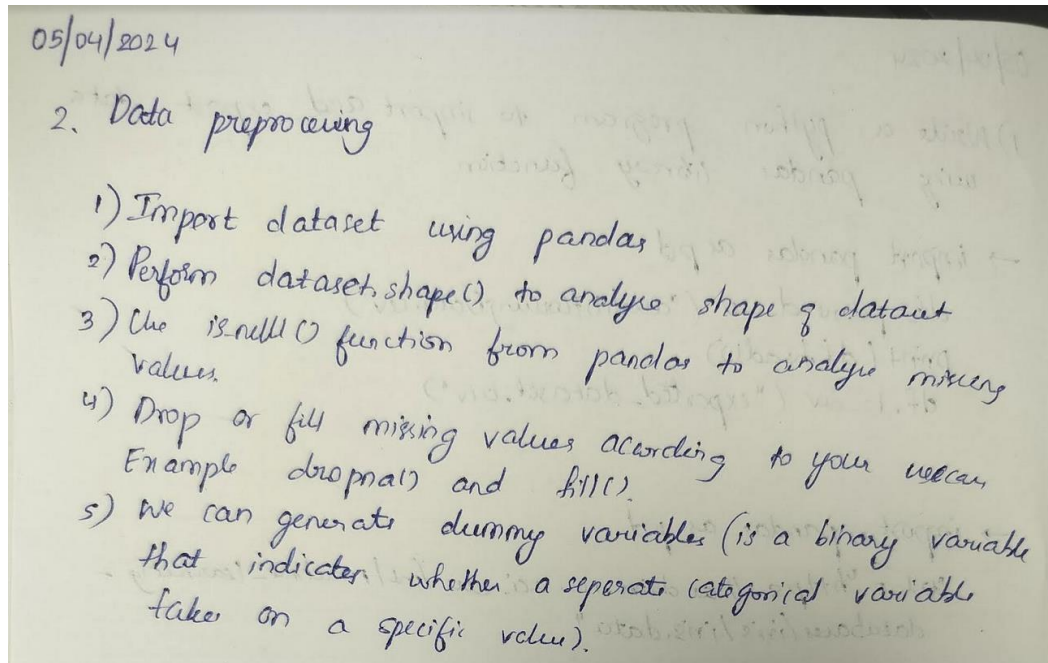 05/04/2024
2. Data preprocessing
1) Import dataset using pandas
2) Perform dataset.shape() to analyse shape of dataset
3) Use isnull() function from pandas to analyse missing
values.
4) Drop or fill missing values acording to your usecase
Example dropna() and fill().
5) We can generate dummy variables (is a binary variable
that indicates whether a seperate categorical variable
takes on a specific value).